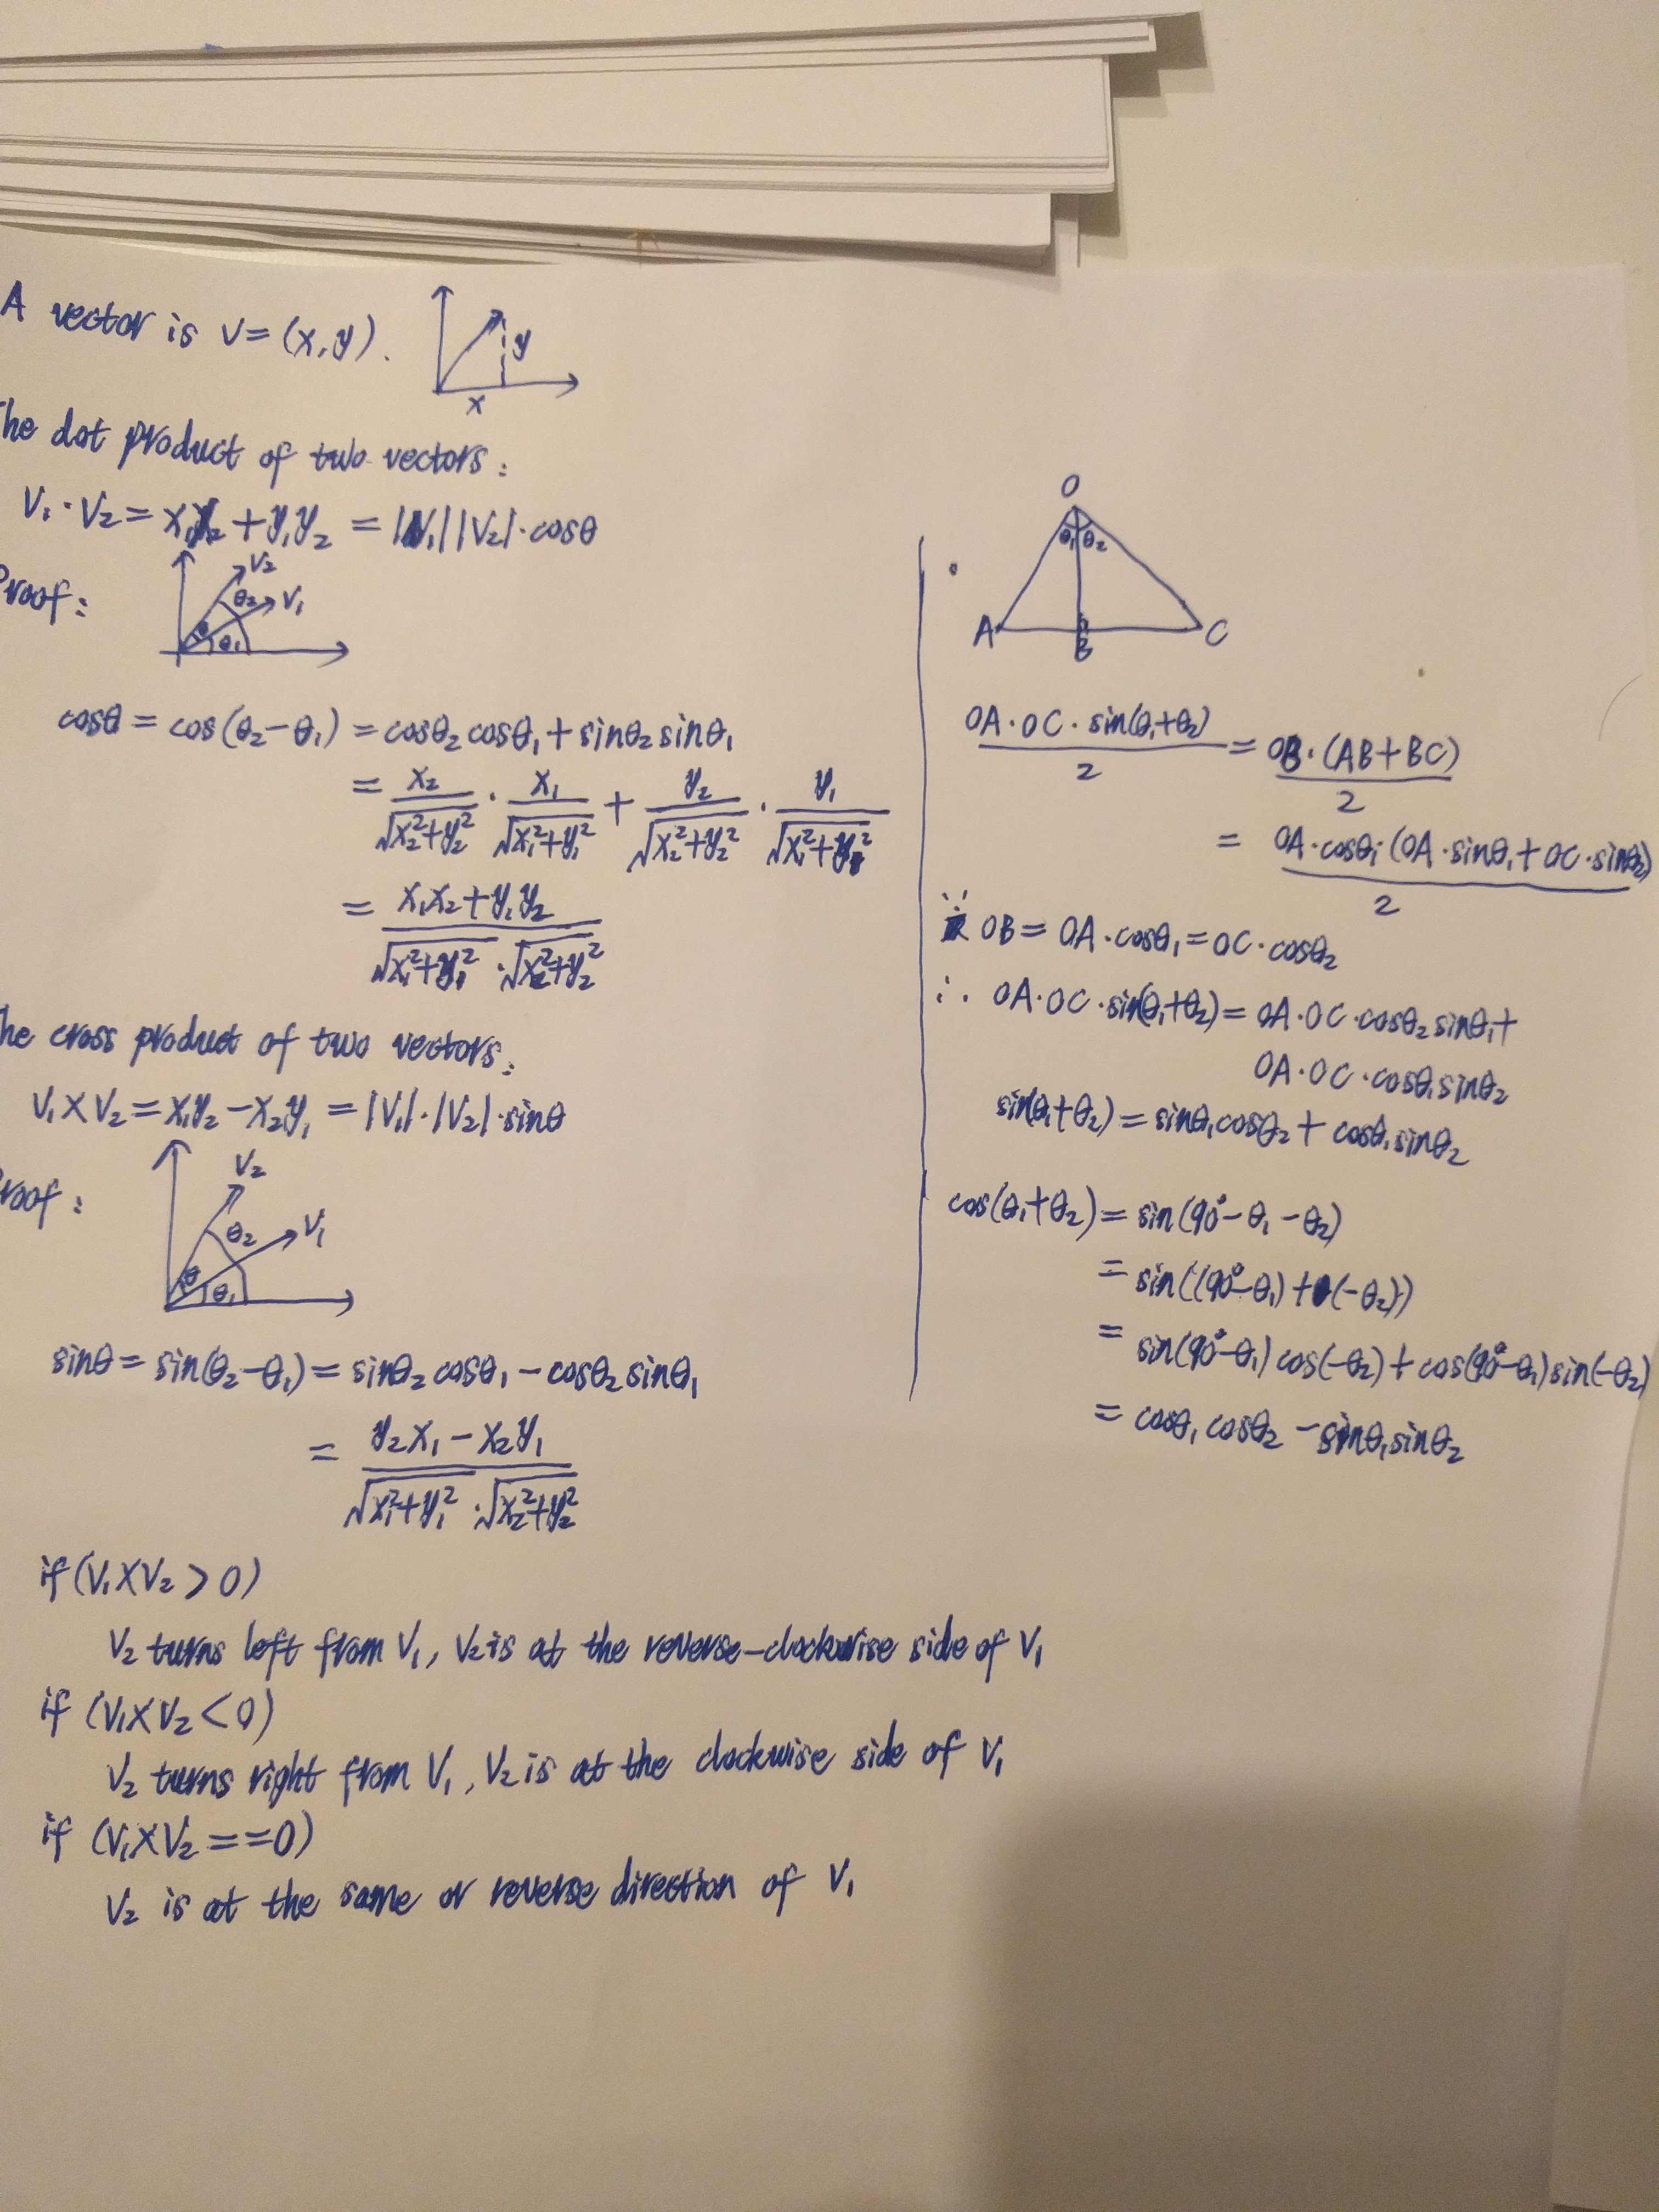 A vector is V = (x, y).
y
x
The dot product of two vectors:
V₁ · V₂ = x₁x₂ + y₁y₂ = |V₁| |V₂| · cosθ
Proof:
V₂
θ₂ V₁
θ θ₁
cosθ = cos(θ₂ - θ₁) = cosθ₂ cosθ₁ + sinθ₂ sinθ₁
= x₂/√(x₂²+y₂²) · x₁/√(x₁²+y₁²) + y₂/√(x₂²+y₂²) · y₁/√(x₁²+y₁²)
= (x₁x₂ + y₁y₂)/(√(x₁²+y₁²) · √(x₂²+y₂²))
The cross product of two vectors:
V₁ × V₂ = x₁y₂ - x₂y₁ = |V₁| · |V₂| · sinθ
Proof:
V₂
θ₂ V₁
θ θ₁
sinθ = sin(θ₂ - θ₁) = sinθ₂ cosθ₁ - cosθ₂ sinθ₁
= (y₂x₁ - x₂y₁)/(√(x₁²+y₁²) · √(x₂²+y₂²))
if (V₁ × V₂ > 0)
V₂ turns left from V₁, V₂ is at the reverse-clockwise side of V₁
if (V₁ × V₂ < 0)
V₂ turns right from V₁, V₂ is at the clockwise side of V₁
if (V₁ × V₂ == 0)
V₂ is at the same or reverse direction of V₁
O
θ₁ θ₂
A B C
OA · OC · sin(θ₁+θ₂)/2 = OB · (AB + BC)/2
= OA · cosθ₁ · (OA · sinθ₁ + OC · sinθ₂)/2
∵ OB = OA · cosθ₁ = OC · cosθ₂
∴ OA · OC · sin(θ₁+θ₂) = OA · OC · cosθ₂ sinθ₁ +
OA · OC · cosθ₁ sinθ₂
sin(θ₁+θ₂) = sinθ₁ cosθ₂ + cosθ₁ sinθ₂
cos(θ₁+θ₂) = sin(90° - θ₁ - θ₂)
= sin((90° - θ₁) + (-θ₂))
= sin(90° - θ₁) cos(-θ₂) + cos(90° - θ₁) sin(-θ₂)
= cosθ₁ cosθ₂ - sinθ₁ sinθ₂